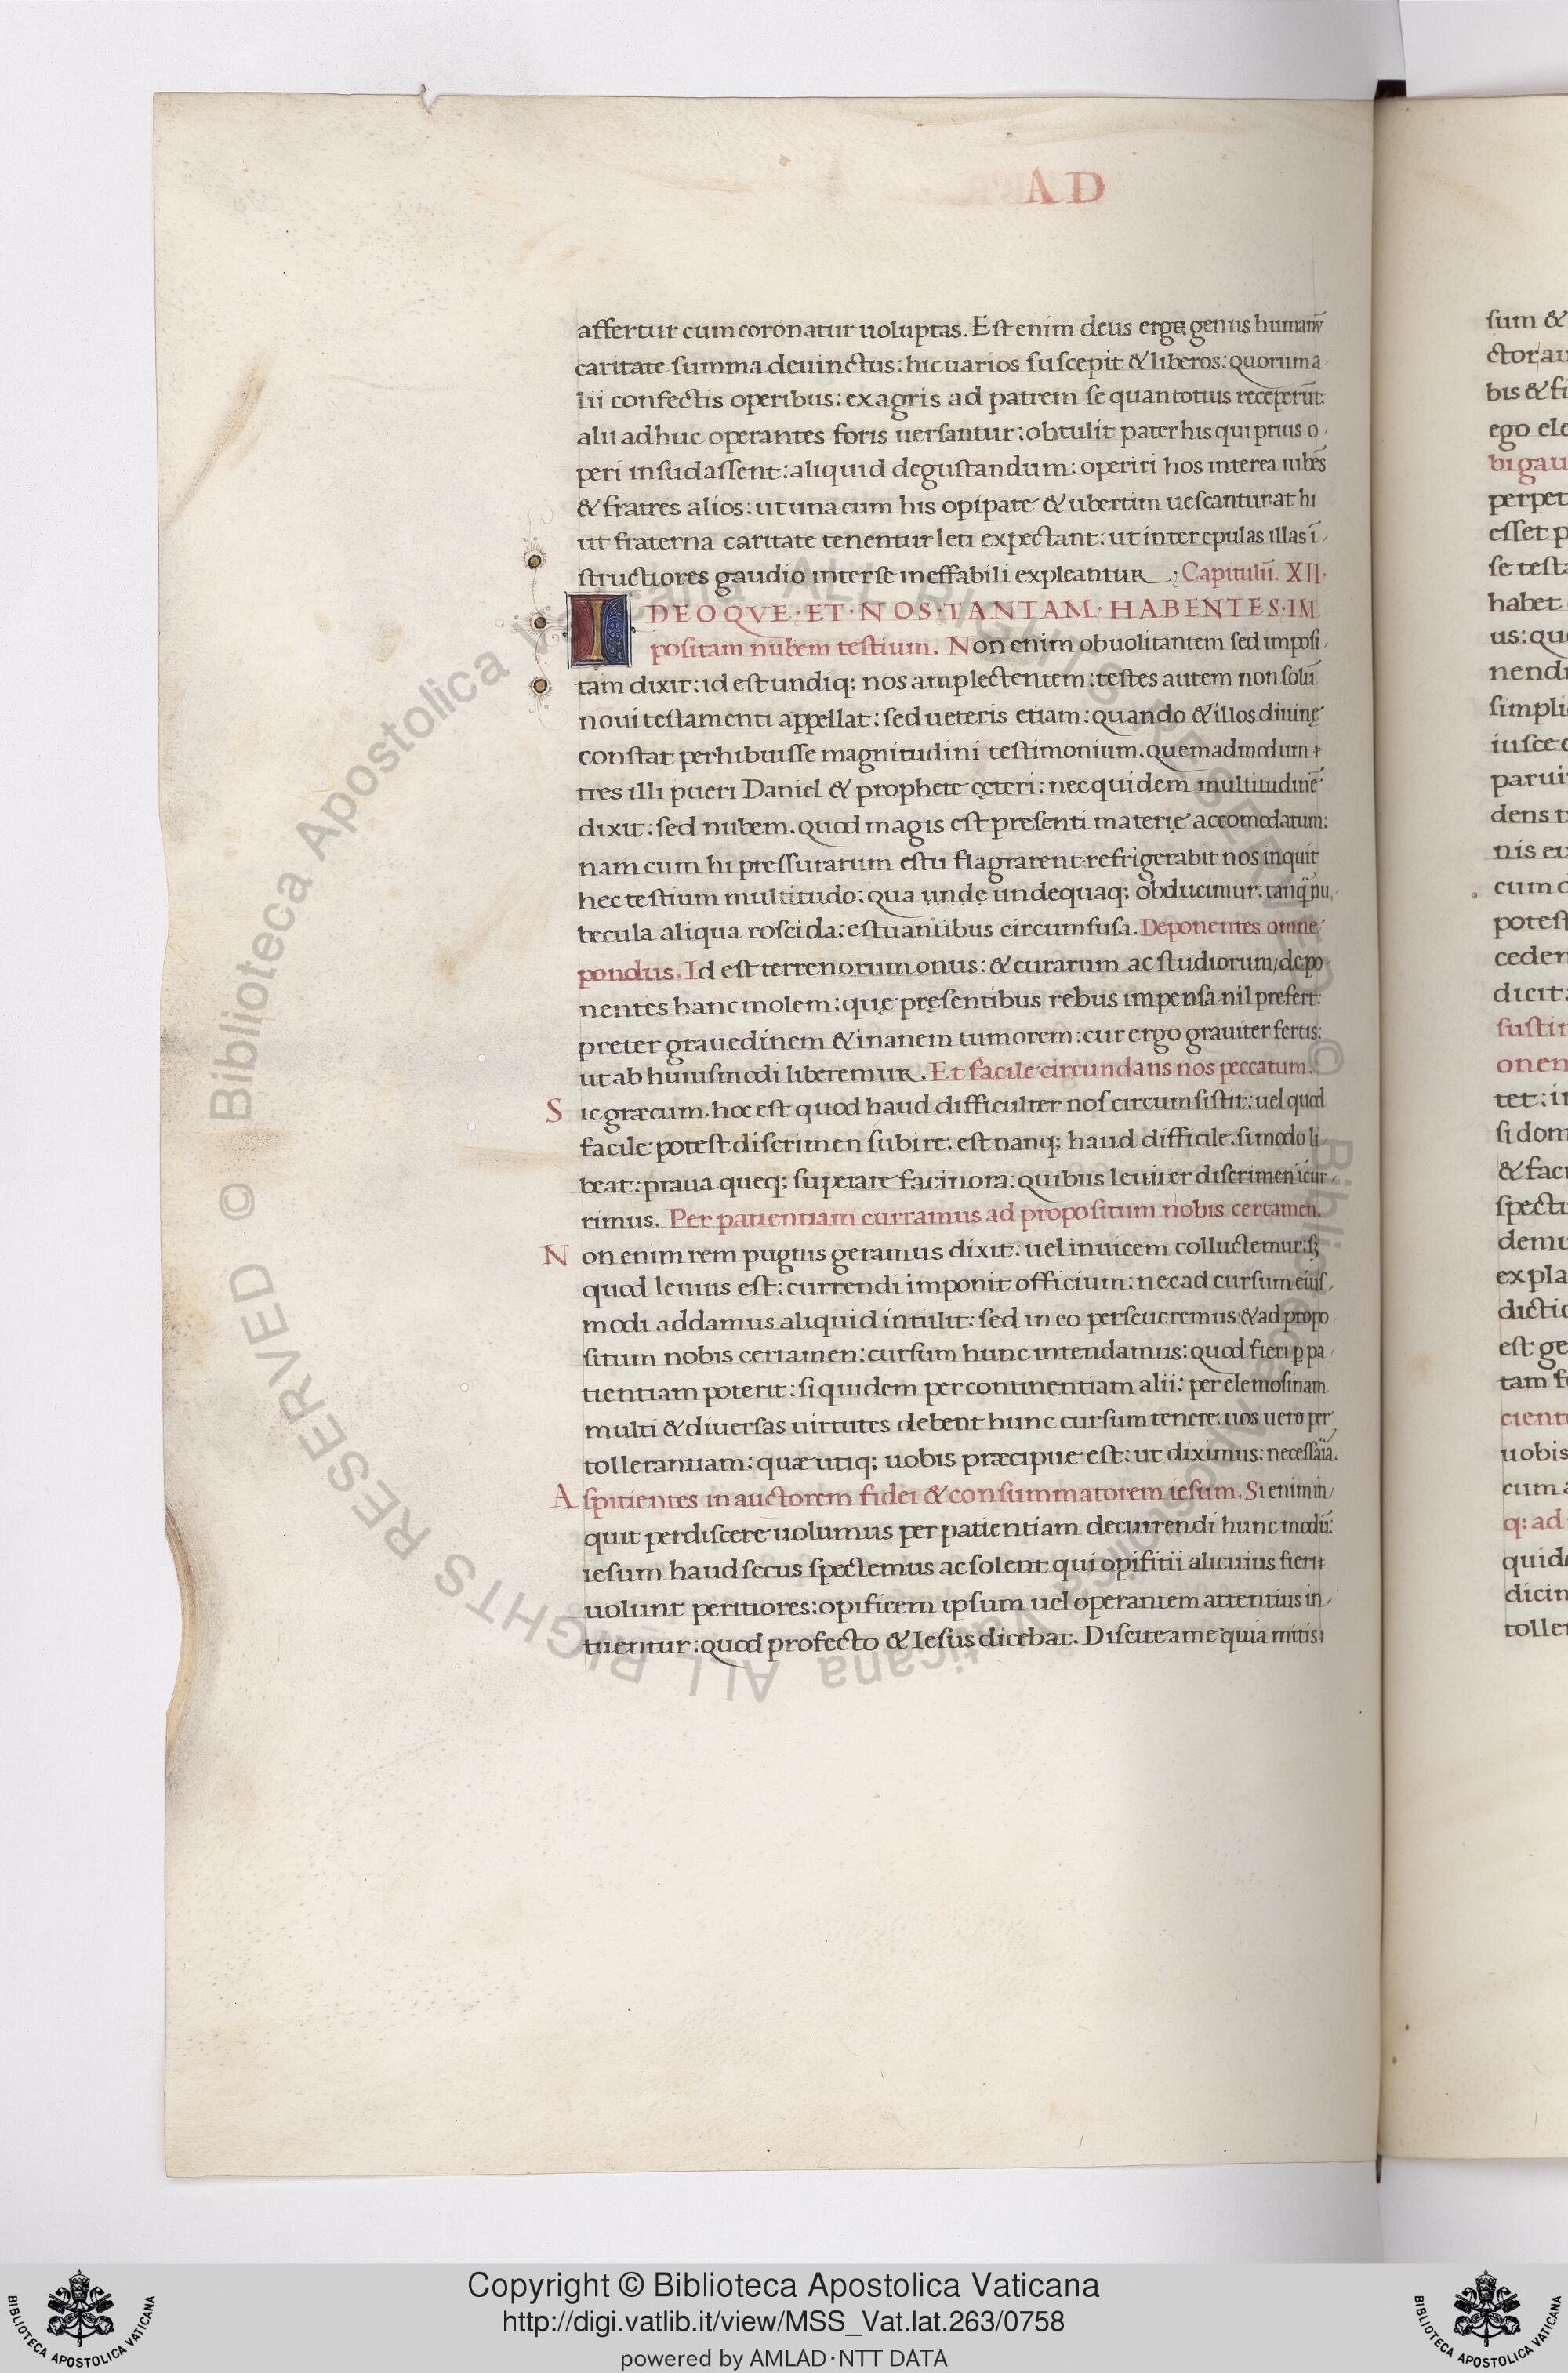 AD
affertur cum coronatur uoluptas. Est enim deus erga genus humanũ
caritate summa deuinctus: hic uarios suscepit & liberos: quorum a
lii confectis operibus: ex agris ad patrem se quantotius receperũt:
alii adhuc operantes foris uersantur: obtulit pater his qui prius o
peri insudassent: aliquid degustandum: operiri hos interea iubẽs
& fratres alios: ut una cum his opipare & ubertim uescantur. at hi
ut fraterna caritate tenentur leti expectant: ut inter epulas illas ĩ
structiores gaudio inter se ineffabili expleantur. Capitulũ. XII.
IDEOQVE·ET·NOS·TANTAM·HABENTES·IM
positam nubem testium. Non enim obuolitantem sed imposi
tam dixit: id est undiq; nos amplectentem: testes autem non solũ
noui testamenti appellat: sed ueteris etiam: quando & illos diuinę
constat perhibuisse magnitudini testimonium. quemadmodum
tres illi pueri Daniel & prophete cęteri: nec quidem multitudinẽ
dixit: sed nubem. quod magis est presenti materię accomodatum:
nam cum hi pressurarum estu flagrarent refrigerabit nos inquit
hec testium multitudo: qua unde undequaq; obducimur: tanq̃ nu
becula aliqua roscida: estuantibus circumfusa. Deponentes omne
pondus. Id est terrenorum onus: & curarum ac studiorum/ depo
nentes hanc molem: quę pręsentibus rebus impensa nil prefert:
preter grauedinem & inanem tumorem: cur ergo grauiter fertis:
ut ab huiusmodi liberemur. Et facile circundans nos peccatum.
Sic græcum. hoc est quod haud difficulter nos circumsistit: uel quod
facile potest discrimen subire: est nanq; haud difficile: si modo li
beat: praua queq; superare facinora: quibus leuiter discrimen ĩcur
rimus. Per patientiam curramus ad propositum nobis certamen.
Non enim rem pugnis geramus dixit: uel inuicem colluctemur: sꝫ
quod leuius est: currendi imponit officium: nec ad cursum eius
modi addamus aliquid intulit: sed in eo perseueremus: & ad propo
situm nobis certamen: cursum hunc intendamus: quod fieri ꝑ pa
tientiam poterit: siquidem per continentiam alii: per elemosinam
multi & diuersas uirtutes debent hunc cursum tenere: uos uero per
tollerantiam: quæ utiq; uobis præcipue est: ut diximus: necessaria.
Aspitientes in auctorem fidei & consummatorem iesum. Si enim in
quit perdiscere uolumus per patientiam decurrendi hunc modũ:
iesum haud secus spectemus ac solent qui opifitii alicuius fieri
uolunt peritiores: opificem ipsum uel operantem attentius in
tuentur: quod profecto & Iesus dicebat. Discite a me quia mitis
sum &
bis & fi
ego ele
esset p
habet
cum
dicit:
tet: i
& faci
est ge
uobis
cum
q: ad
Copyright © Biblioteca Apostolica Vaticana
http://digi.vatlib.it/view/MSS_Vat.lat.263/0758
powered by AMLAD·NTT DATA
BIBLIOTECA APOSTOLICA VATICANA
BIBLIOTECA APOSTOLICA VATICANA
© Biblioteca Apostolica Vaticana ALL RIGHTS RESERVED
© Biblioteca Apostolica Vaticana ALL RIGHTS RESERVED